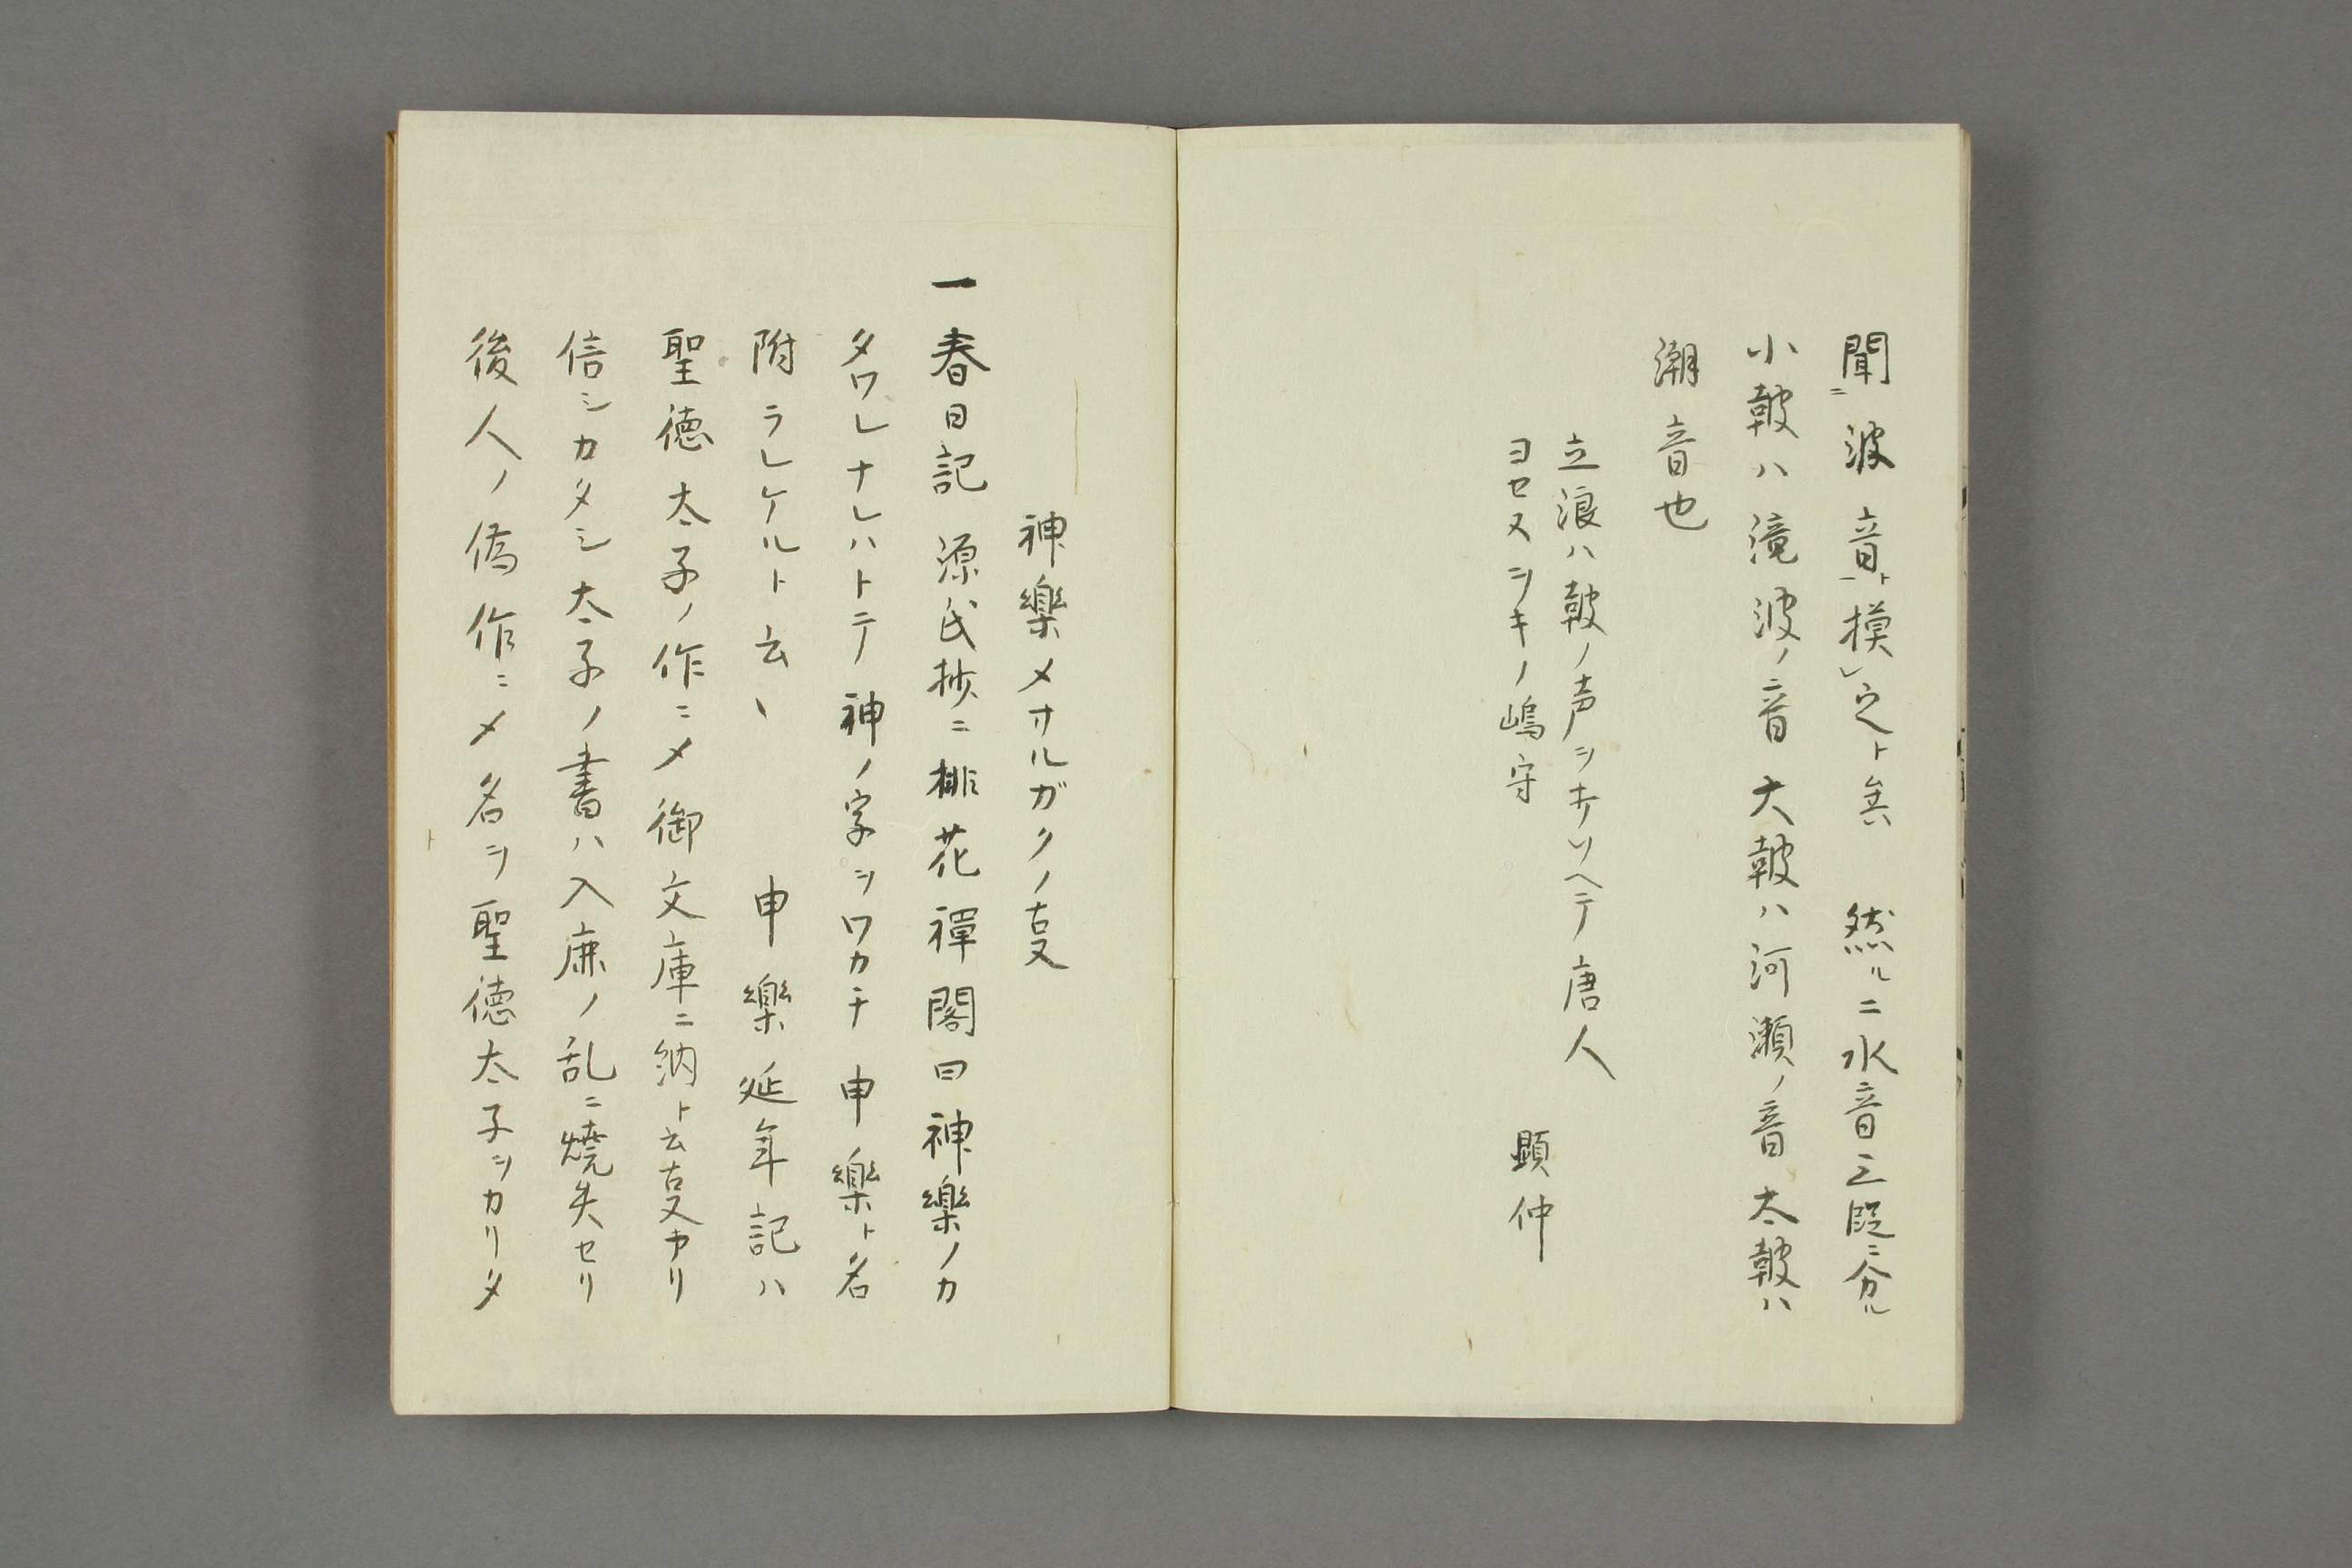 聞ニ波音ト摸レ之ト矣 然ルニ水音三段ニ分ル
小皷ハ滝波ノ音大皷ハ河瀬ノ音太皷ハ
潮音也
立浪ハ皷ノ声ヲキソヘテ唐人
ヨセヌシキノ嶋守
顕仲
神樂メサルガクノ叓
一春日記源氏抄ニ排花禪閤曰神樂ノカ
タワレナレハトテ神ノ字ヲワカチ申樂ト名
附ラレケルト云〻 申樂延年記ハ
聖徳太子ノ作ニメ御文庫ニ納ト云叓アリ
信シカタシ太子ノ書ハ入鹿ノ乱ニ焼失セリ
後人ノ偽作ニメ名ヲ聖徳太子ヲカリタ